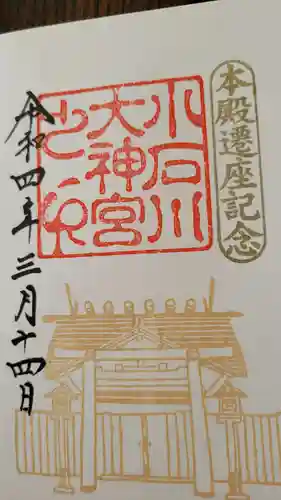 本殿遷座記念
小石川
大神宮
之印
令和四年三月十四日